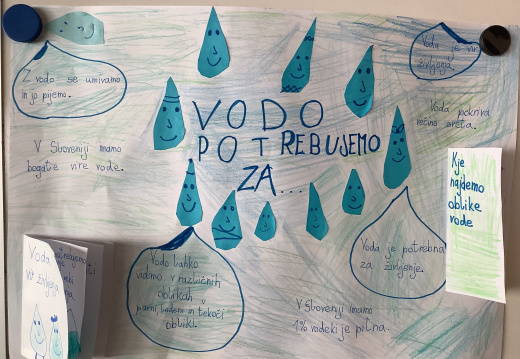 Z vodo se umivamo
in jo pijemo.
V Sloveniji imamo
bogate vire vode.
VODO
POTREBUJEMO
ZA...
Voda je vir
življenja.
Voda pokriva
večino sveta.
Kje
najdemo
oblike
vode
Voda je potrebna
za življenje.
Vodo lahko
vidimo v različnih
oblikah v
parni, ledeni in tekoči
obliki.
V Sloveniji imamo
1% vode ki je pitna.
Voda
vir življenja